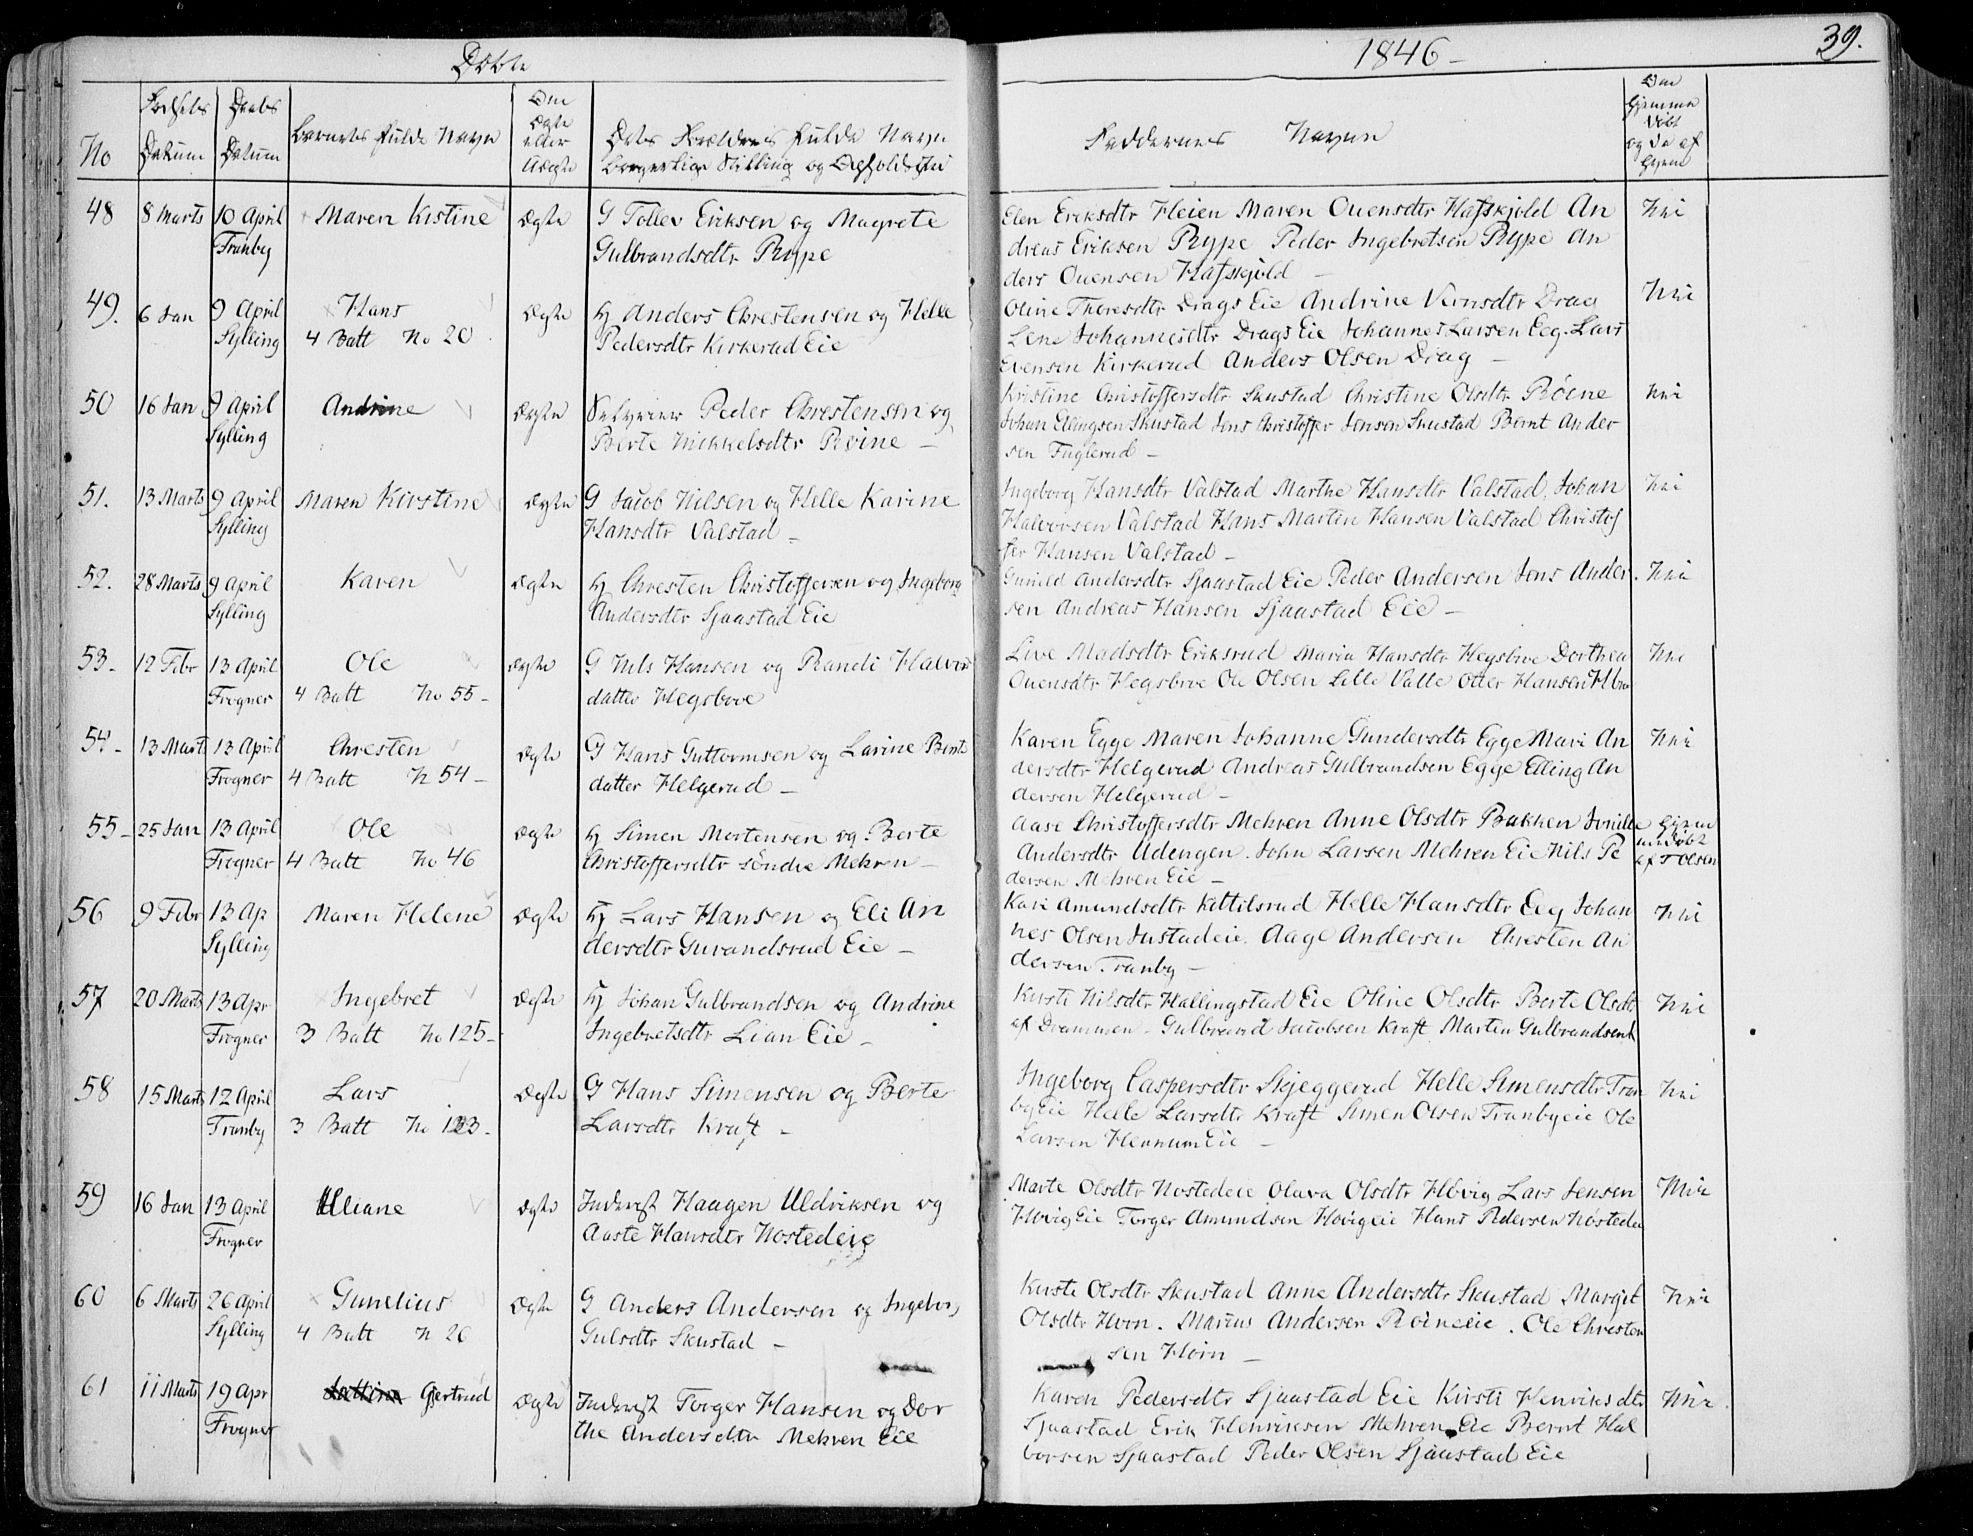 Døbte
1846 -
39.
No
Fødsels Datum
Daabs Datum
Barnets fulde Navn
Om Ægte eller Uægte
Dets Forældres fulde Navn
borgerlige Stilling og Opholdsted
Faddernes Navn
Om hjemme døbt og da af hvem
48 8 Marts 10 April Maren Kistine ægte G Tollev Eriksen og Magrete
Tranby Gulbrandsdtr Rype
Elen Eriksdtr Heien Maren Ouensdtr Hafskjold An
dreas Eriksen Rype Peder Ingebretsen Rype An
ders Ouensen Hafskjold -
Nei
49. 6 Jan 9 April Hans ægte Hj Anders Chrestensen og Helle
Sylling 4 Batt No 20 Pedersdtr Kirkerud Eie
Oline Theresdtr Drags Eie Andrine Vernsdtr Drag
Lene Johannesdtr Drags Eie Johannes Larsen Eeg. Lars
Evensen Kirkerud Anders Olsen Drag -
Nei
50 16 Jan 9 April Andrine ægte Peder Chrestensen og
Sylling Berte Mikkelsdtr Röine -
Kristine Christoffersdtr Skustad Christine Olsdtr Röine
Johan Ellingsen Skustad Jens Christoffer Jensen Skustad Bernt Ander
sen Fuglerud -
Nei
51. 13 Marts 9 April Maren Kirstine ægte G Jacob Nilsen og Helle Karine
Sylling Hansdtr Valstad -
Ingeborg Hansdtr Valstad Marthe Hansdtr Valstad. Johan
Halvorsen Valstad Hans Martin Hansen Valstad Christof
fer Hansen Valstad -
Nei
52. 28 Marts 9 April Karen ægte Hj Chresten Christoffersen og Ingeborg
Sylling Andersdtr Sjaastad Eie
Gunild Andersdtr Sjaastad Eie Peder Andersen Jens Ander
sen Andreas Hansen Sjaastad Eie -
Nei
53- 12 Febr 13 April Ole ægte G Nils Hansen og Randi Halvors
Frogner 4 Batt No 55- datter Hegsbroe
Live Madsdtr Eriksrud Maria Hansdtr Hegsbroe Dorthea
Ouensdtr Hegsbroe Ole Olsen Lille Valle Otter Hansen
Nei
54- 13 Marts 13 April Chresten ægte G Hans Guttormsen og Larine Bernt
Frogner 4 Batt N 54- datter Helgerud -
Karen Egge Maren Johanne Gundersdtr Egge Mari An
dersdtr Helgerud Andreas Gulbrandsen Egge Elling An
dersen Helgerud -
Nei
55- 25 Jan 13 April Ole ægte Hj Simen Mortensen og Berte
Frogner 4 Batt No 46 Christoffersdtr söndre Mehren -
Aase Christoffersdtr Mehren Anne Olsdtr Bakken
Andersdtr Udengen. John Larsen Mehren Eie Nils Pe
dersen Mehren Eie -
hjem
me døbt
af T Olsen
56 9 Febr 13 Ap Maren Helene ægte Hj Lars Hansen og Eli An
Sylling dersdtr Guvandsrud Eie -
Kari Amundsdtr Kittilsrud Helle Hansdtr Eeg Johan
nes Olsen Justadeie. Aage Andersen Chresten An
dersen Tranby -
Nei
57 20 Marts 13 Apr Ingebret ægte Hj Johan Gulbrandsen og Andrine
Frogner 3 Batt No 125- Ingebretsdtr Lian Eie -
Kirsti Nilsdtr Hallingstad Eie Oline Olsdtr Berte Olsdtr
af Drammen. Gulbrand Jacobsen Kraft Martin Gulbrandsen
Nei
58 15 Marts 12 April Lars ægte G Hans Simensen og Berte
Tranby 3 Batt No 123- Larsdtr Kraft -
Ingeborg Caspersdtr Skjeggerud Helle Simensdtr Tran
by Eie Helle Larsdtr Kraft Simen Olsen Tranbyeie Ole
Larsen Hennum Eie -
Nei
59 16 Jan 13 April Uliane ægte Inderst Haagen Uldriksen og
Frogner Aaste Hansdtr Nostedeie
Marte Olsdtr Nostedeie Olava Olsdtr Høvig Lars Jensen
Høvig Eie Torger Amundsen Høvigeie Hans Pedersen Nøstedeie
Nei
60 6 Marts 26 April Gunelius ægte G Anders Andersen og Ingebor
Sylling 4 Batt N 26 Gulsdtr Skustad -
Kirste Olsdtr Skustad Anne Andersdtr Skustad Margit
Olsdtr Horn. Marius Andersen Röineeie. Ole Chresten
sen Horn -
Nei
61 11 Marts 19 Apr Gjertrud ægte Inderst Torger Hansen og Dor
Frogner the Andersdtr Mehren Eie
Karen Pedersdtr Sjaastad Eie Kirsti Henriksdtr
Sjaastad Erik Henriksen Mehren Eie Bernt Hal
vorsen Sjaastad Peder Olsen Sjaastad Eie
Nei